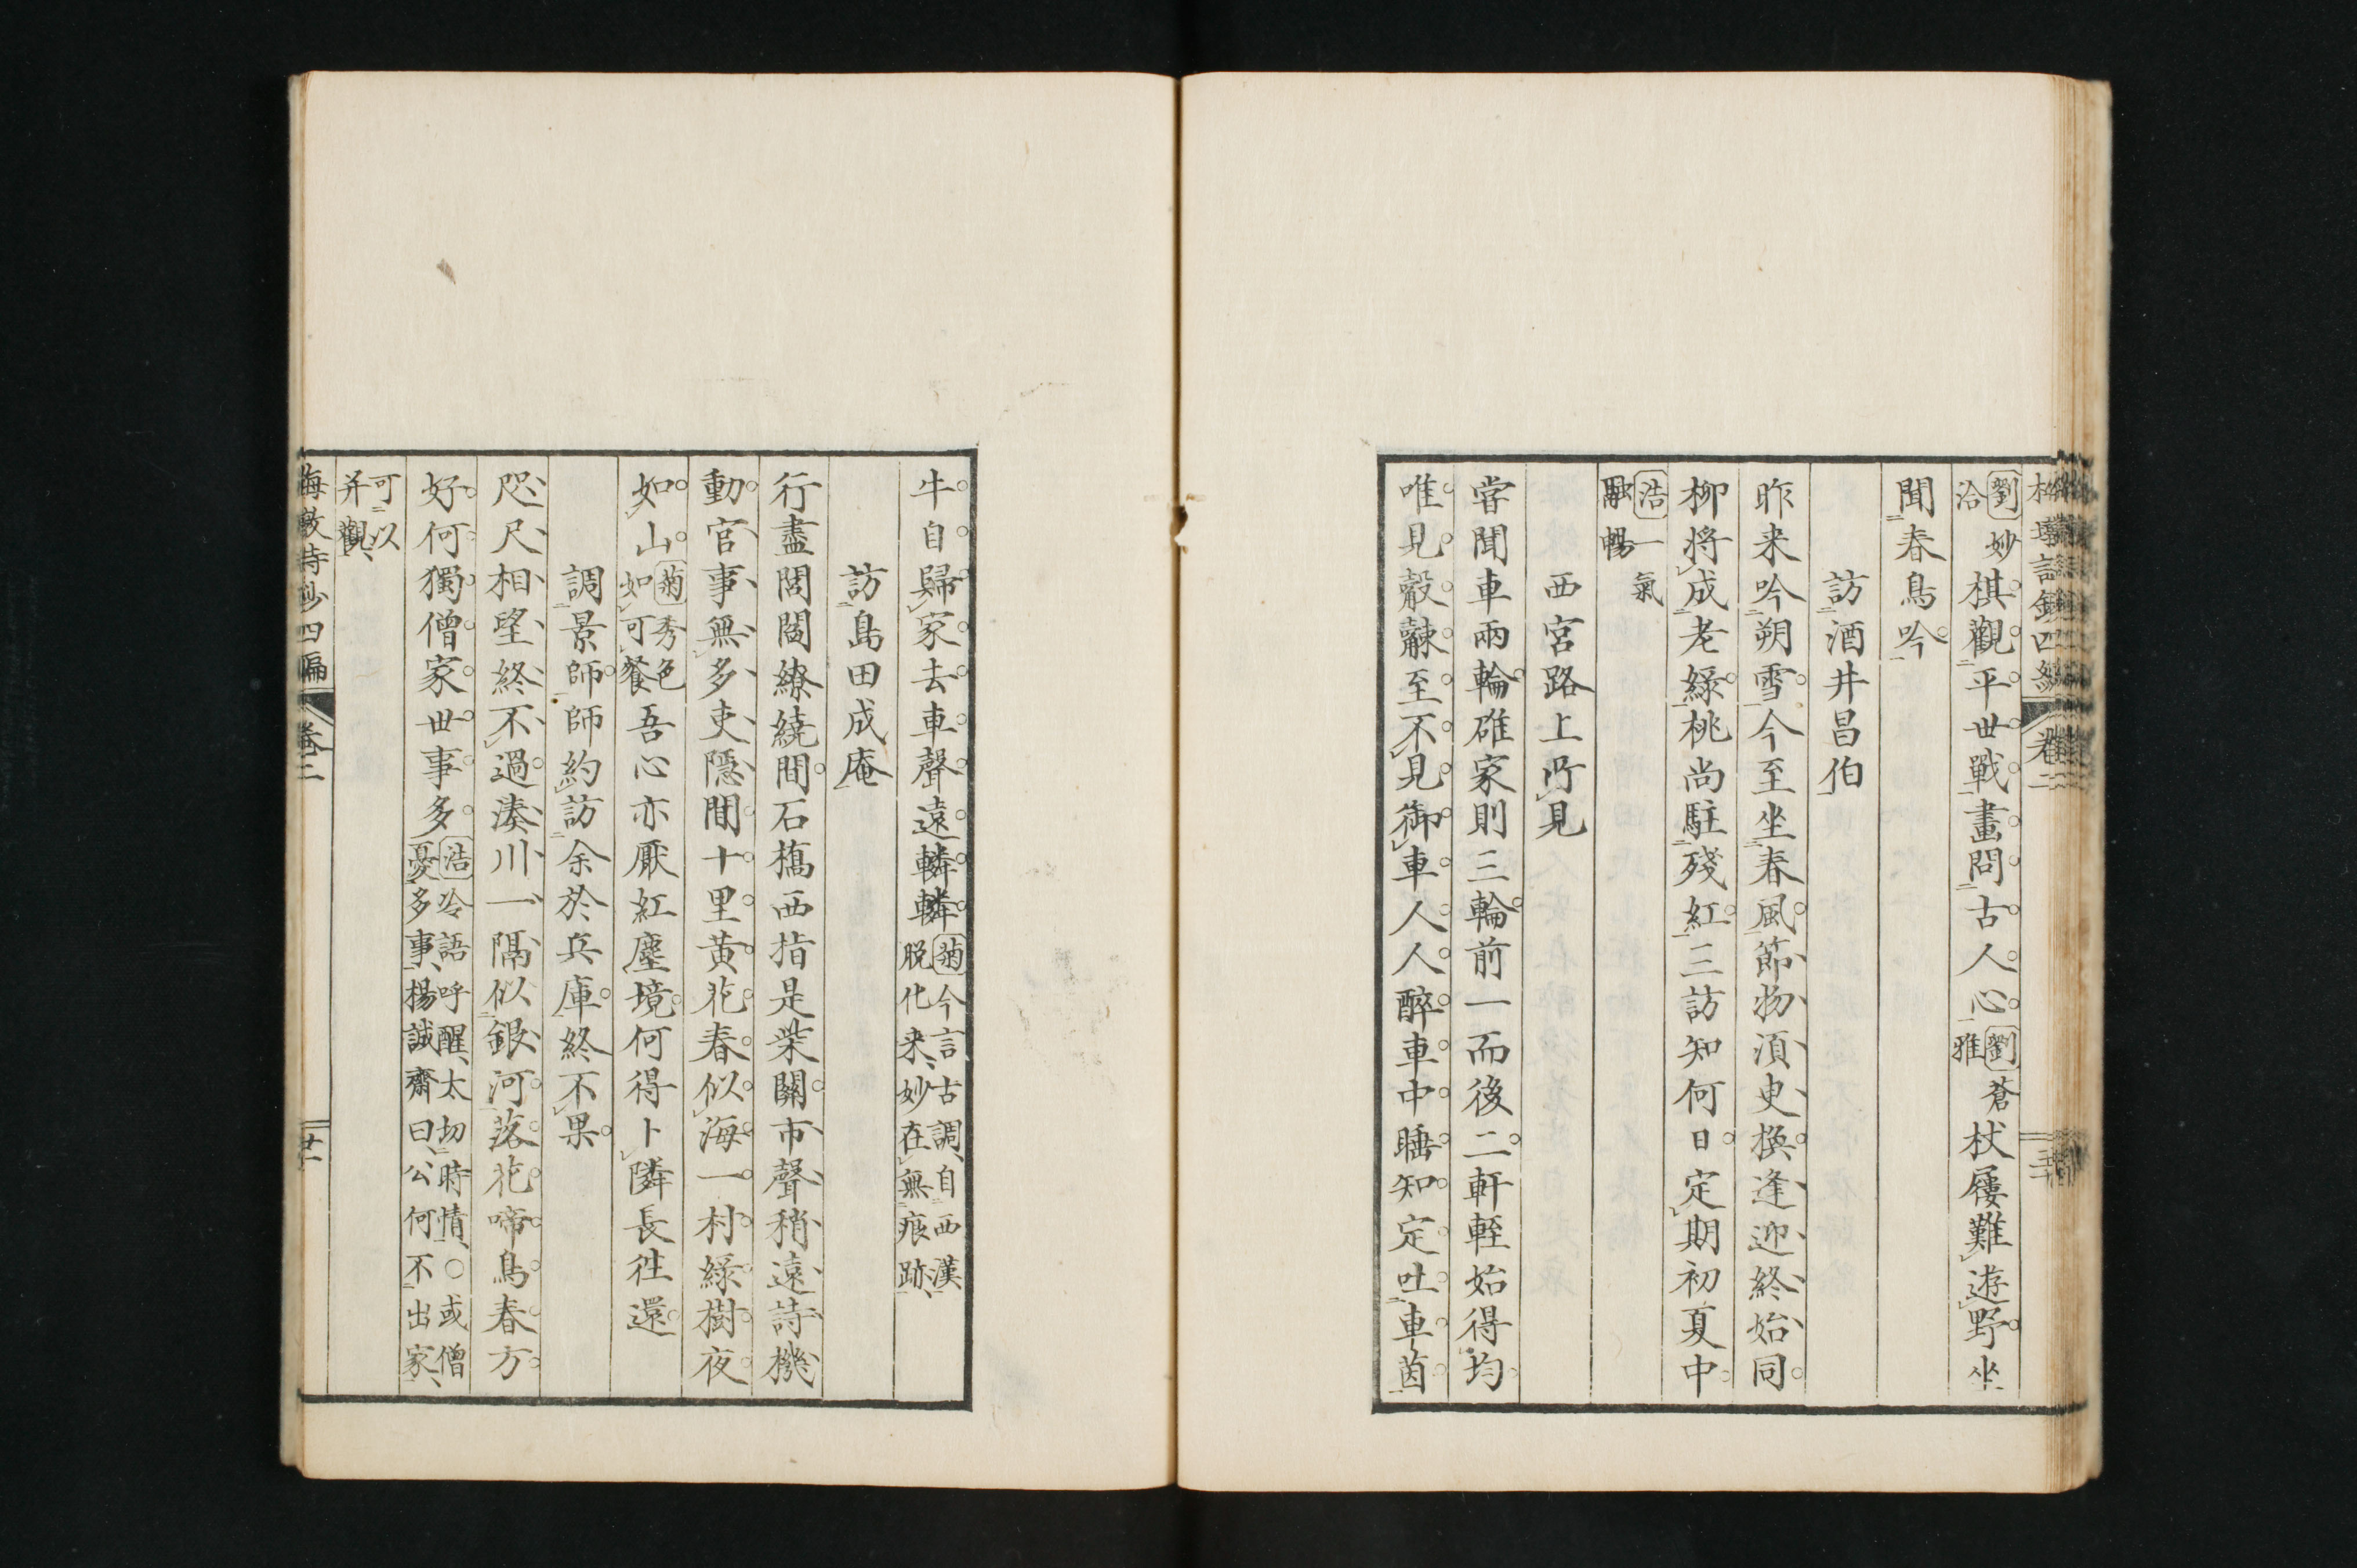 劉妙洽棋觀平世戰畫問古人心劉蒼雅杖屨難遊野坐
聞春鳥吟
訪酒井昌伯
昨来吟朔雪今至坐春風節物須臾換逢迎終始同
柳將成老緑桃尚駐殘紅三訪知何日定期初夏中
浩一氣融暢
西宮路上所見
嘗聞車兩輪碓家則三輪前一而後二軒輊始得均
唯見觳觫至不見御車人人醉車中睡知定吐車茵
牛自歸家去車聲遠轔轔菊今言古調自西漢脱化来妙在無痕跡
訪島田成庵
行盡闤闠繚繞間石橋西指是柴關市聲稍遠詩機
動官事無多吏隱閒十里黄花春似海一村緑樹夜
如山菊秀色如可餐吾心亦厭紅塵境何得卜隣長往還
調景師師約訪余於兵庫終不果
咫尺相望終不過湊川一隔似銀河落花啼鳥春方
好何獨僧家世事多浩冷語呼醒太切時情○或僧憂多事楊誠齋曰公何不出家
可以并觀
海敏詩鈔四編 卷二 廿一